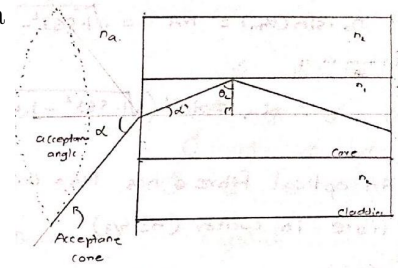 n
na
n₂
n₁
θc
α'
α
acceptan
angle
Core
n₂
Claddin
Acceptane
cone